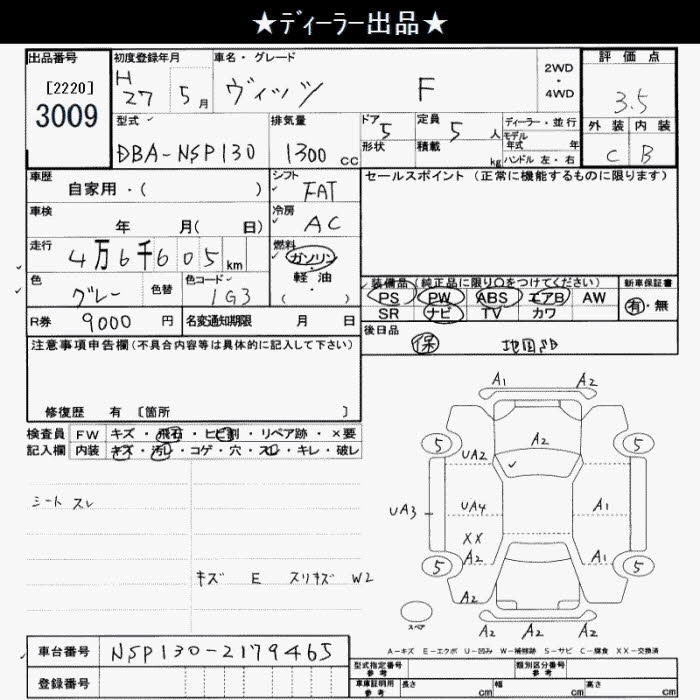 ★ディーラー出品★
出品番号 初度登録年月 車名・グレード 2WD・4WD 評価点
[2220] H27 5月 ヴィッツ F 3.5
3009 外装 内装
型式 排気量 ドア 定員 ディーラー・並行
DBA-NSP130 1300cc 5 5人 モデル年式 年 C B
形状 積載 kg ハンドル 左・右
車歴 シフト セールスポイント(正常に機能するものに限ります)
自家用・( ) FAT
車検 冷房
年 月( 日) AC
走行 燃料
4万6千605km ガソリン
色 色替 色コード 軽・油 装備品(純正品に限り○をつけてください) 新車保証書
グレー 1G3 ( ・ ) PS PW ABS エアB AW 有・無
R券 9000円 名変通知期限 月 日 SR ナビ TV カワ
後日品
注意事項申告欄(不具合内容等は具体的に記入して下さい) 保
修復歴 有 〔箇所 〕
検査員 FW キズ・飛石・ヒビ割・リペア跡・×要
記入欄 内装 キズ・汚レ・コゲ・穴・スレ・キレ・破レ
シート スレ
キズ E スリキズ W2
A1 A2
A2
5 5
UA2
UA3 UA4 A1
XX
A2 A1
5 5
A2
スペア A2 A2 A2
A-キズ E-エクボ U-凹み W-補修跡 S-サビ C-腐食 XX-交換済
車台番号 NSP130-2179465
型式指定番号 参考 類別区分番号 参考
登録番号 車庫証明用 参考 長さ cm 幅 cm 高さ cm